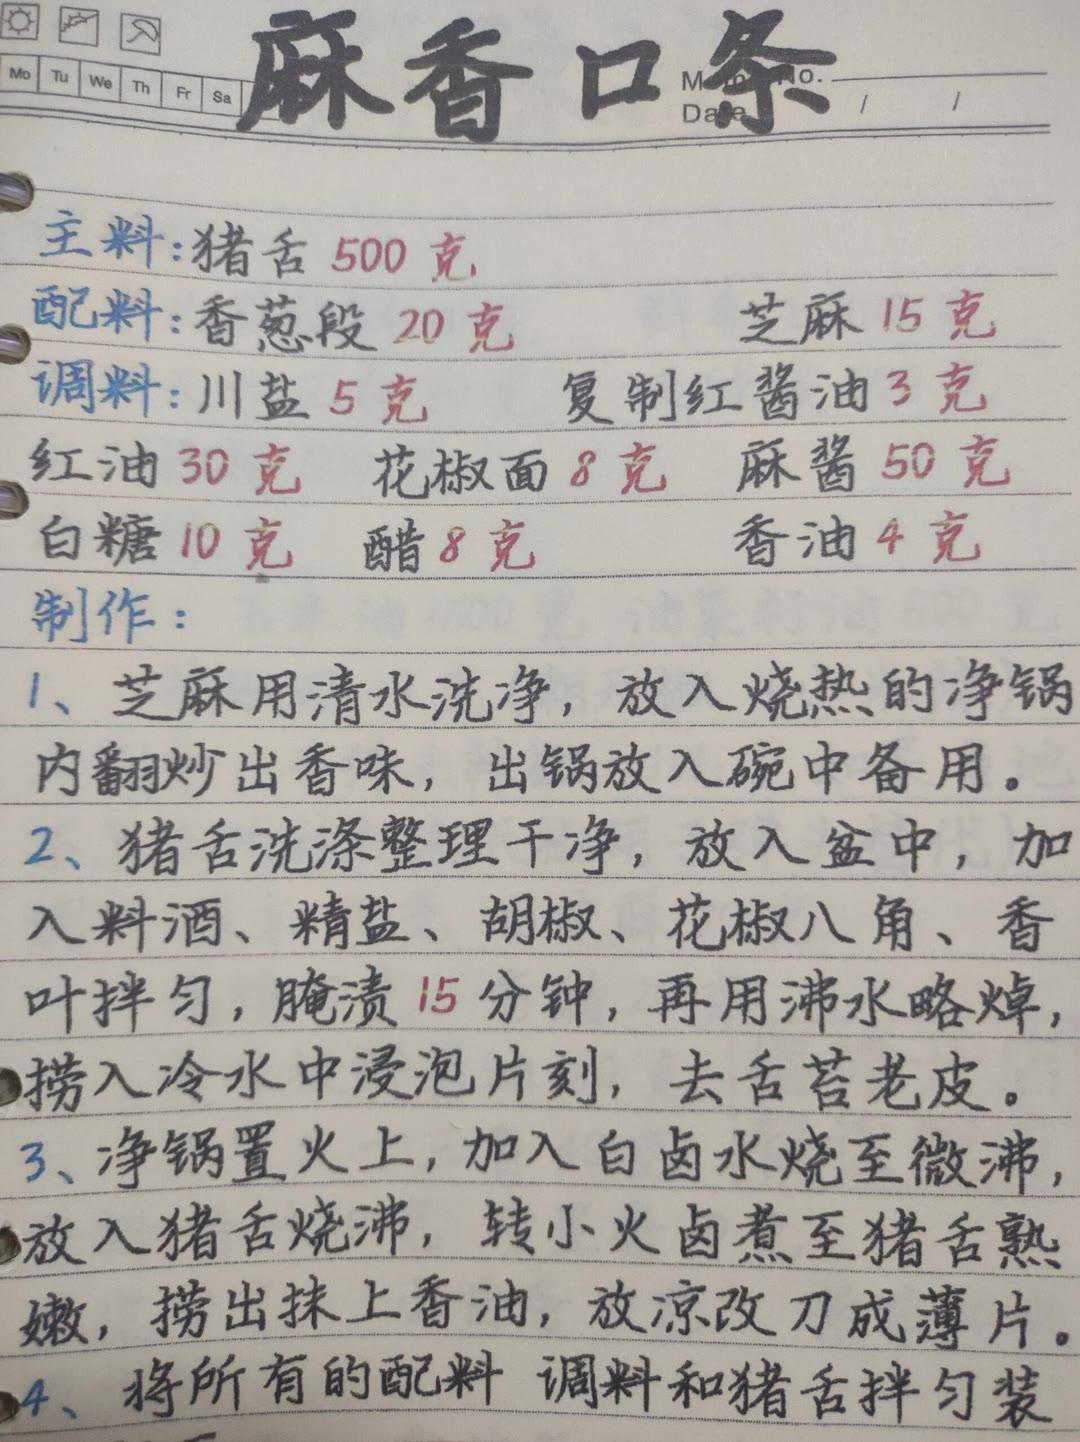 麻香口条
Mo Tu We Th Fr Sa
No.
Date / /
主料:猪舌 500 克
配料:香葱段 20 克 芝麻 15 克
调料:川盐 5 克 复制红酱油 3 克
红油 30 克 花椒面 8 克 麻酱 50 克
白糖 10 克 醋 8 克 香油 4 克
制作:
1、芝麻用清水洗净，放入烧热的净锅
内翻炒出香味，出锅放入碗中备用。
2、猪舌洗涤整理干净，放入盆中，加
入料酒、精盐、胡椒、花椒八角、香
叶拌匀，腌渍 15 分钟，再用沸水略焯，
捞入冷水中浸泡片刻，去舌苔老皮。
3、净锅置火上，加入白卤水烧至微沸，
放入猪舌烧沸，转小火卤煮至猪舌熟
嫩，捞出抹上香油，放凉改刀成薄片。
4、将所有的配料 调料和猪舌拌匀装